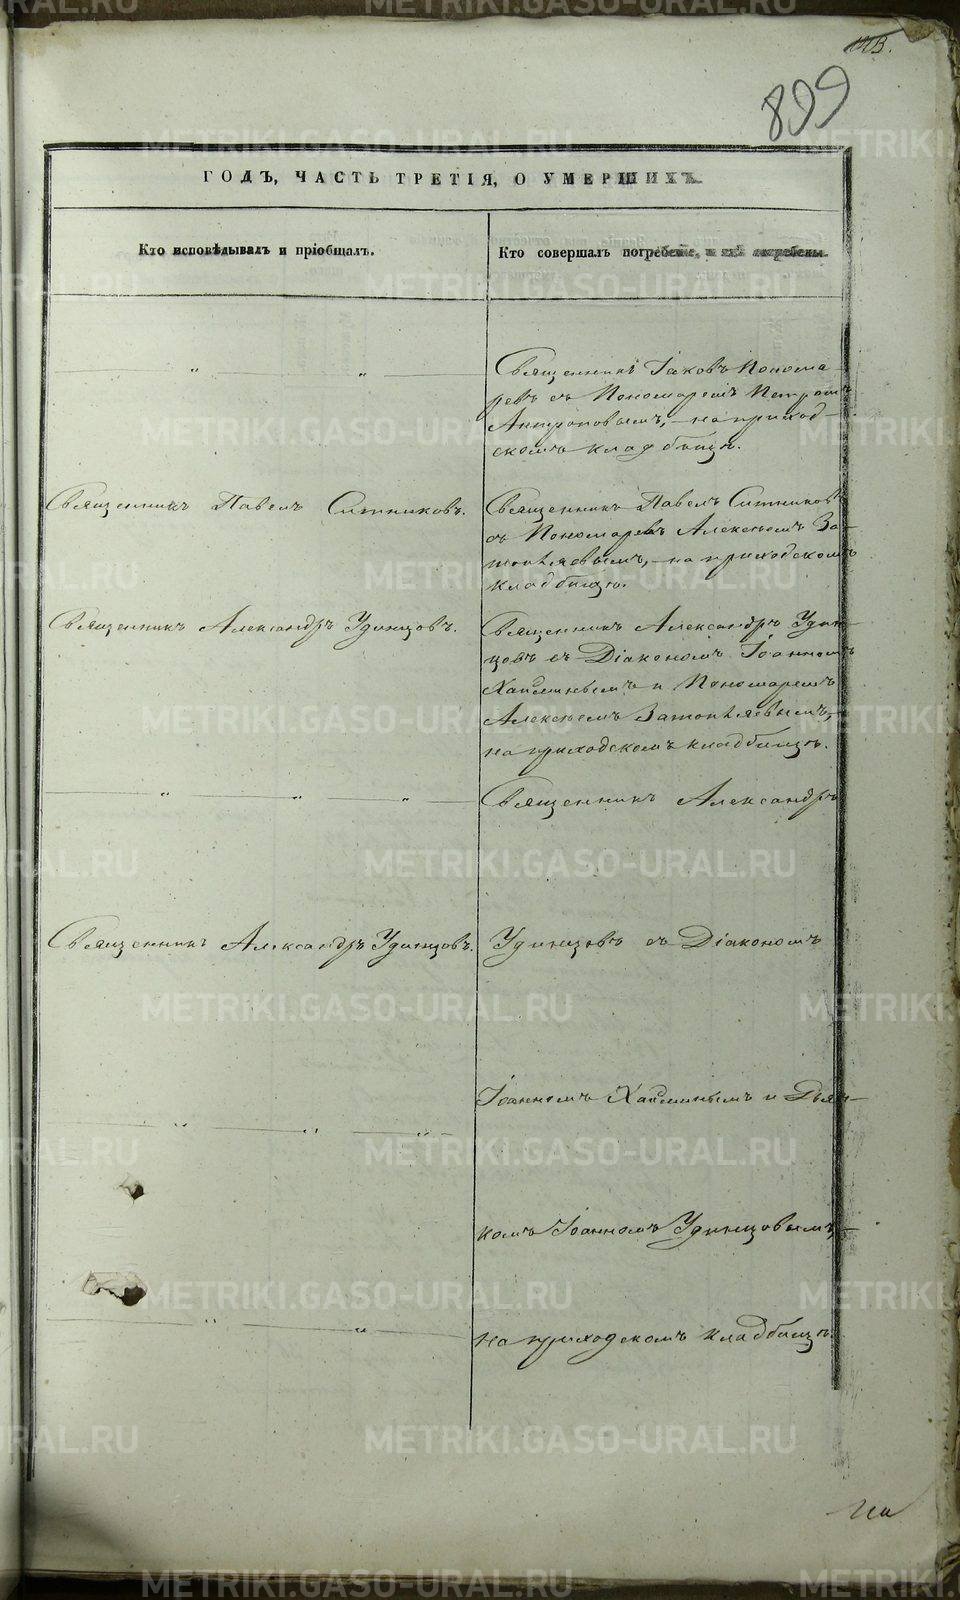 899
ГОДЪ, ЧАСТЬ ТРЕТІЯ, О УМЕРШИХЪ.
Кто исповѣдывалъ и пріобщалъ.
Кто совершалъ погребеніе, и гдѣ погребены.
„ „
Священникъ Іаковъ Понома
ревъ съ Пономаремъ Петромъ
Антроповымъ, на приход-
скомъ кладбищѣ.
Священникъ Павелъ Ситниковъ.
Священникъ Павелъ Ситниковъ
съ Пономаремъ Алексѣемъ За-
топляевымъ, на приходскомъ
кладбищѣ.
Священникъ Александръ Удинцовъ.
Священникъ Александръ Удин-
цовъ съ Діакономъ Іоанномъ
Хайминымъ и Пономаремъ
Алексѣемъ Затопляевымъ,
на приходскомъ кладбищѣ.
„ „ „
Священникъ Александръ
Священникъ Александръ Удинцовъ.
Удинцовъ съ Діакономъ
Іоанномъ Хайминымъ и Дьяч-
„ „ „
комъ Іоанномъ Удинцовымъ,
„ „
на приходскомъ кладбищѣ.
METRIKI.GASO-URAL.RU